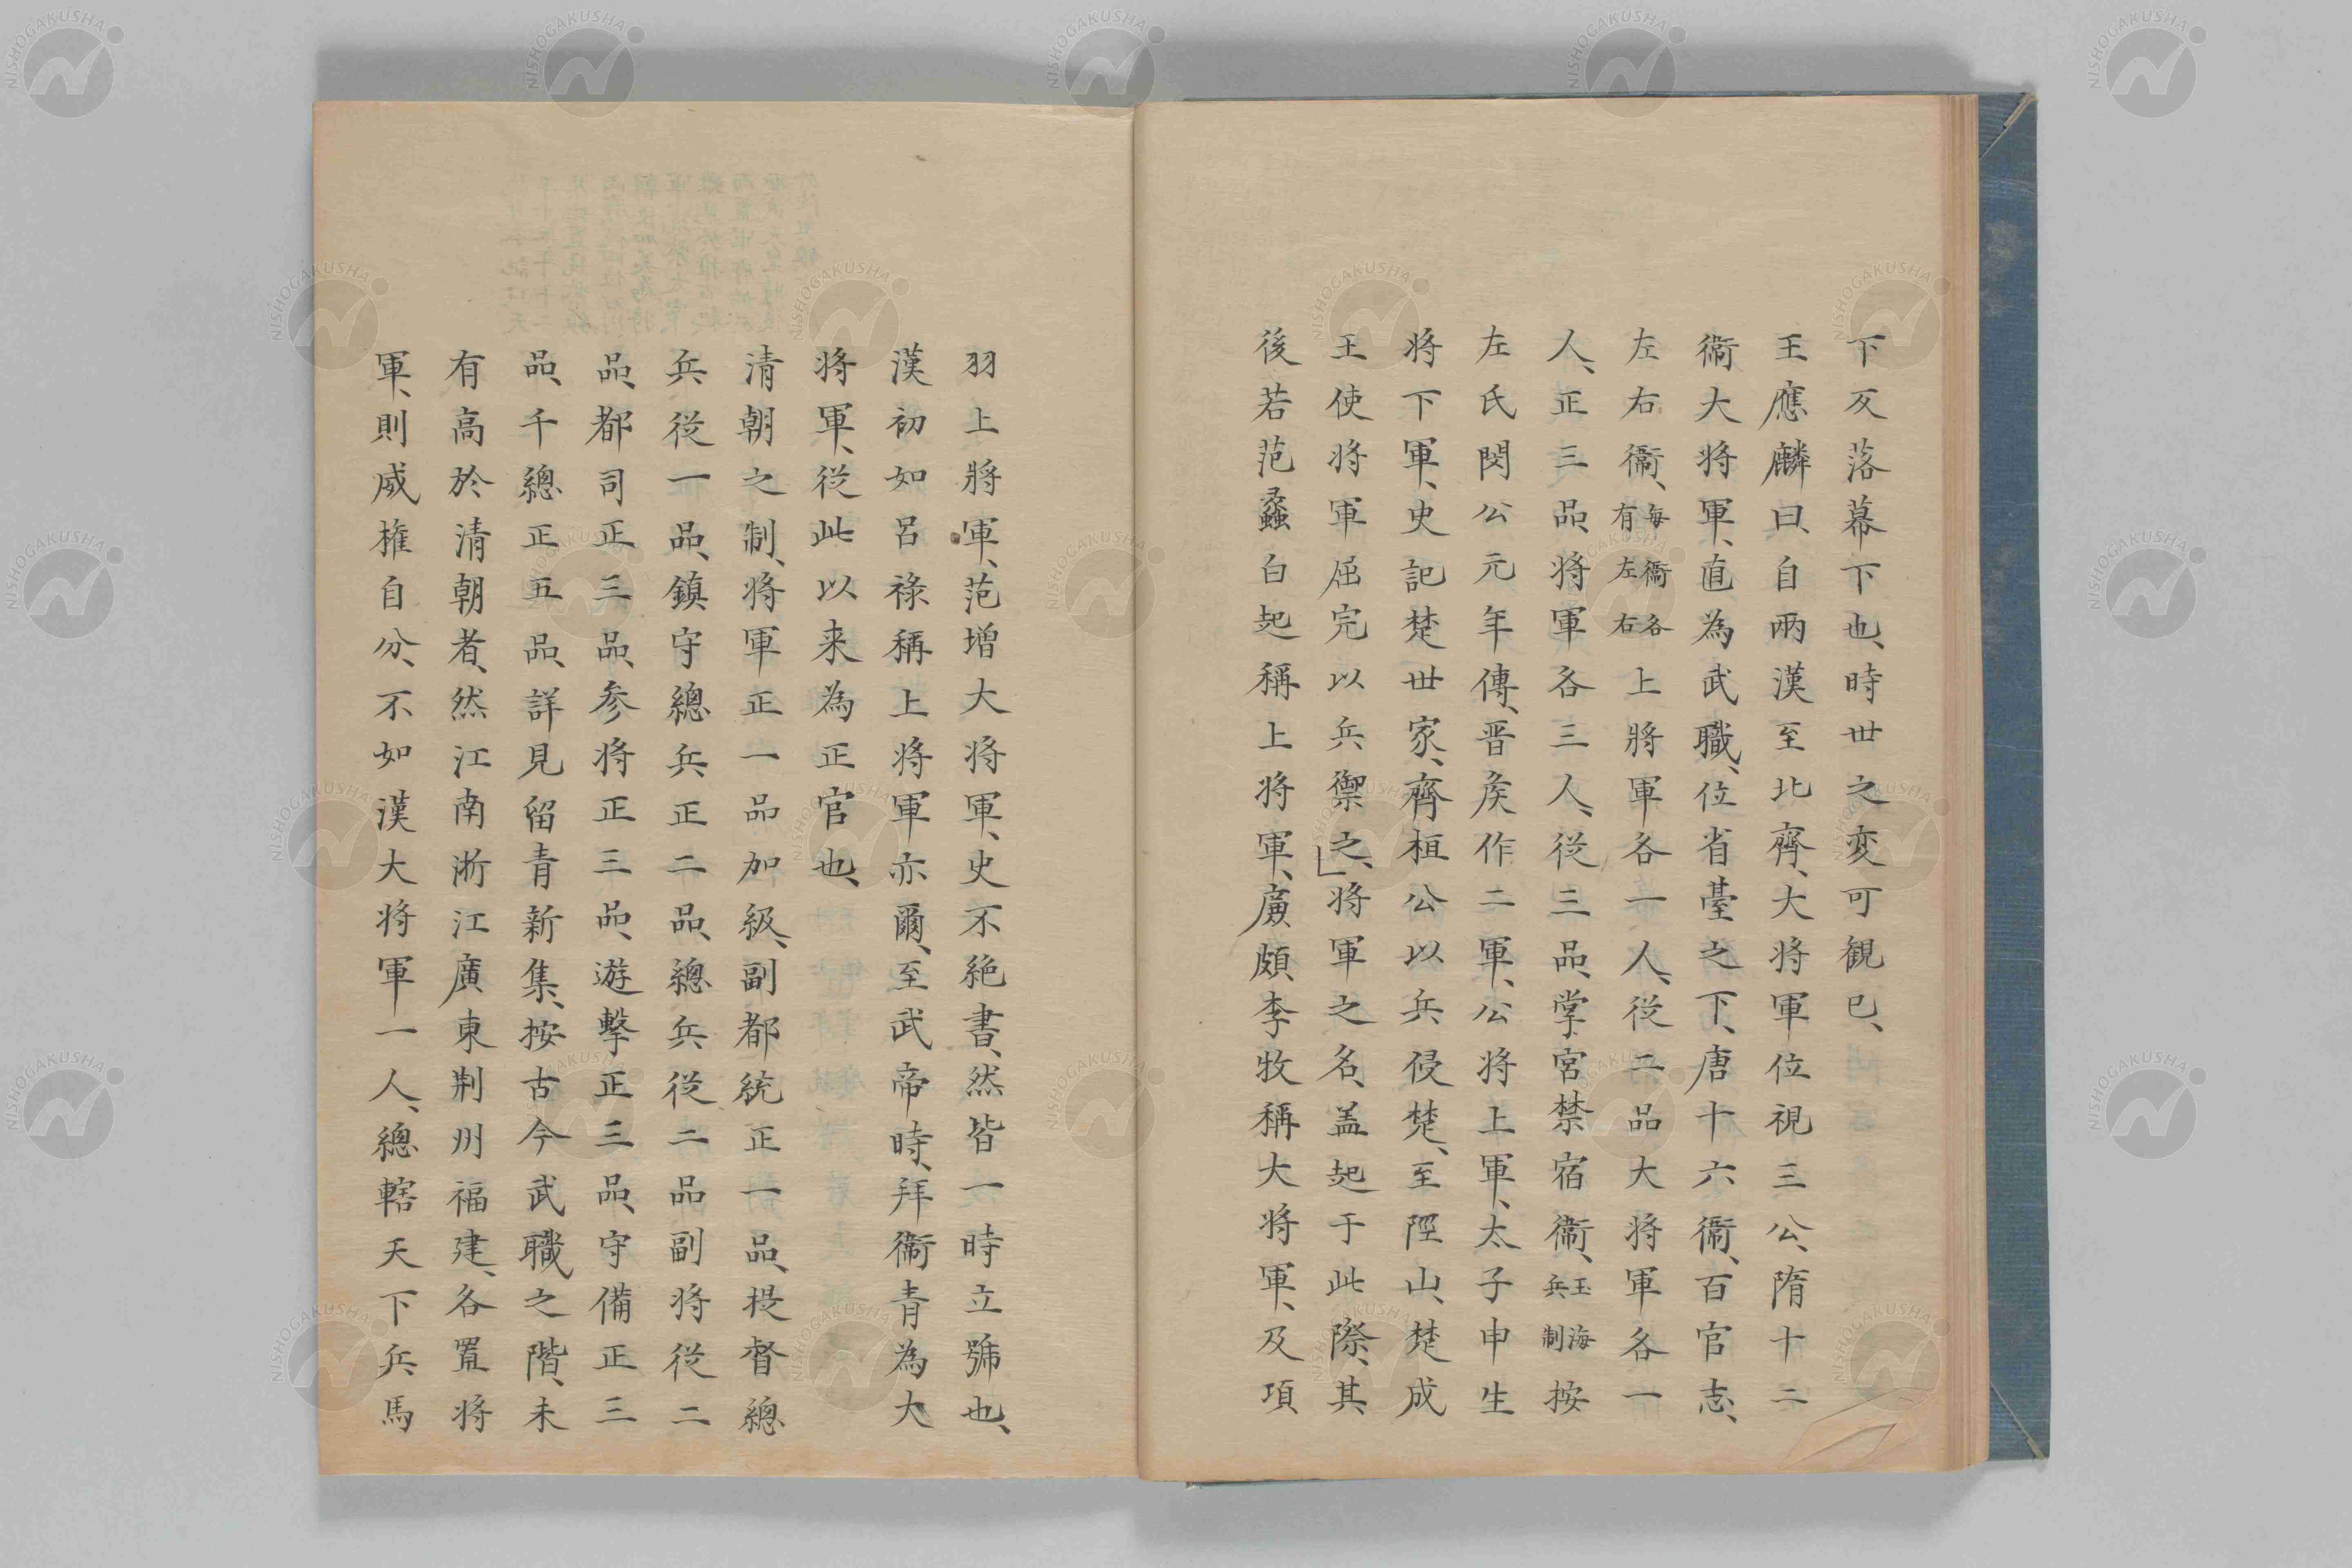 下及落幕下也、時世之変可観已、
王應麟曰、自兩漢至北齊、大将軍位視三公、隋十二
衞大将軍、直為武職、位省臺之下、唐十六衞、百官志、
左右衞、每衞各有左右上將軍各一人、従二品大将軍各一
人、正三品、将軍各三人、従三品、掌宮禁宿衞、玉海兵制按
左氏閔公元年傳、晋侯作二軍、公将上軍、太子申生
将下軍、史記楚世家、齊桓公以兵侵楚、至陘山、楚成
王使将軍屈完以兵禦之、」将軍之名、盖起于此際、其
後若范蠡白起稱上将軍、廉頗李牧稱大将軍、及項
羽上將軍、范增大将軍、史不絶書、然皆一時立號也、
漢初如呂祿稱上将軍亦爾、至武帝時、拜衞青為大
将軍、従此以来為正官也、
清朝之制、将軍正一品加級、副都統正一品、提督總
兵従一品、鎮守總兵正二品、總兵従二品副将従二
品、都司正三品、参将正三品、遊擊正三品、守備正三
品、千總正五品、詳見留青新集、按古今武職之階、未
有高於清朝者、然江南浙江廣東荆州福建、各置将
軍、則威権自分、不如漢大将軍一人、總轄天下兵馬
NISHOGAKUSHA